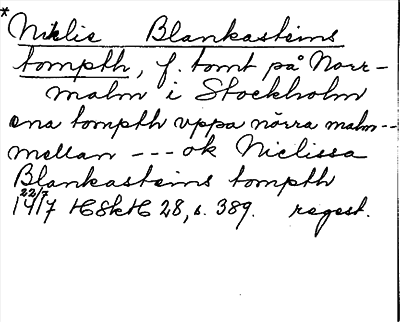 * Niclis Blankasteins
tompth, f. tomt på Norr-
malm i Stockholm
ena tompth vppa nörra malm--
mellan --- ok Niclissa
Blankasteins tompth
22/7
1417 HSkH 28, s. 389. regest.